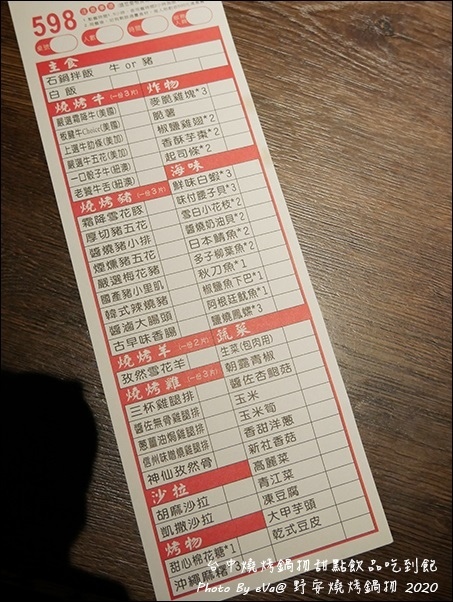 598
主食
石鍋拌飯 牛 or 豬
白飯
燒烤牛(一份3片)
嚴選霜降牛(美國)
板腱牛Choice(美國)
上選牛肋條(美加)
嚴選牛五花(美加)
一口骰子牛(紐澳)
老饕牛舌(紐澳)
燒烤豬(一份3片)
霜降雪花豚
厚切豬五花
醬燒豬小排
煙燻豬五花
嚴選梅花豬
國產豬小里肌
韓式辣燒豬
醬滷大腸頭
古早味香腸
燒烤羊(一份2片)
孜然雪花羊
燒烤雞(一份3片)
三杯雞腿排
醬佐無骨雞腿排
蔥薑油焗雞腿排
信州味噌燒雞腿排
神仙孜然骨
沙拉
胡麻沙拉
凱撒沙拉
烤物
甜心棉花糖*1
沖繩麻糬
炸物
麥脆雞塊*3
脆薯
椒鹽雞翅*2
香酥芋棗*2
起司條*2
海味
鮮味白蝦*3
味付腰子貝*3
雪白小花枝*2
醬燒奶油貝*2
日本鯖魚*2
多子柳葉魚*2
秋刀魚*1
椒鹽魚下巴*1
阿根廷魷魚*1
鹽燒鳳螺*3
蔬菜
生菜(包肉用)
朝露青椒
醬佐杏鮑菇
玉米
玉米筍
香甜洋蔥
新社香菇
高麗菜
青江菜
凍豆腐
大甲芋頭
乾式豆皮
台中燒烤鍋物甜點飲品吃到飽
Photo By eVa@ 野宴燒烤鍋物 2020